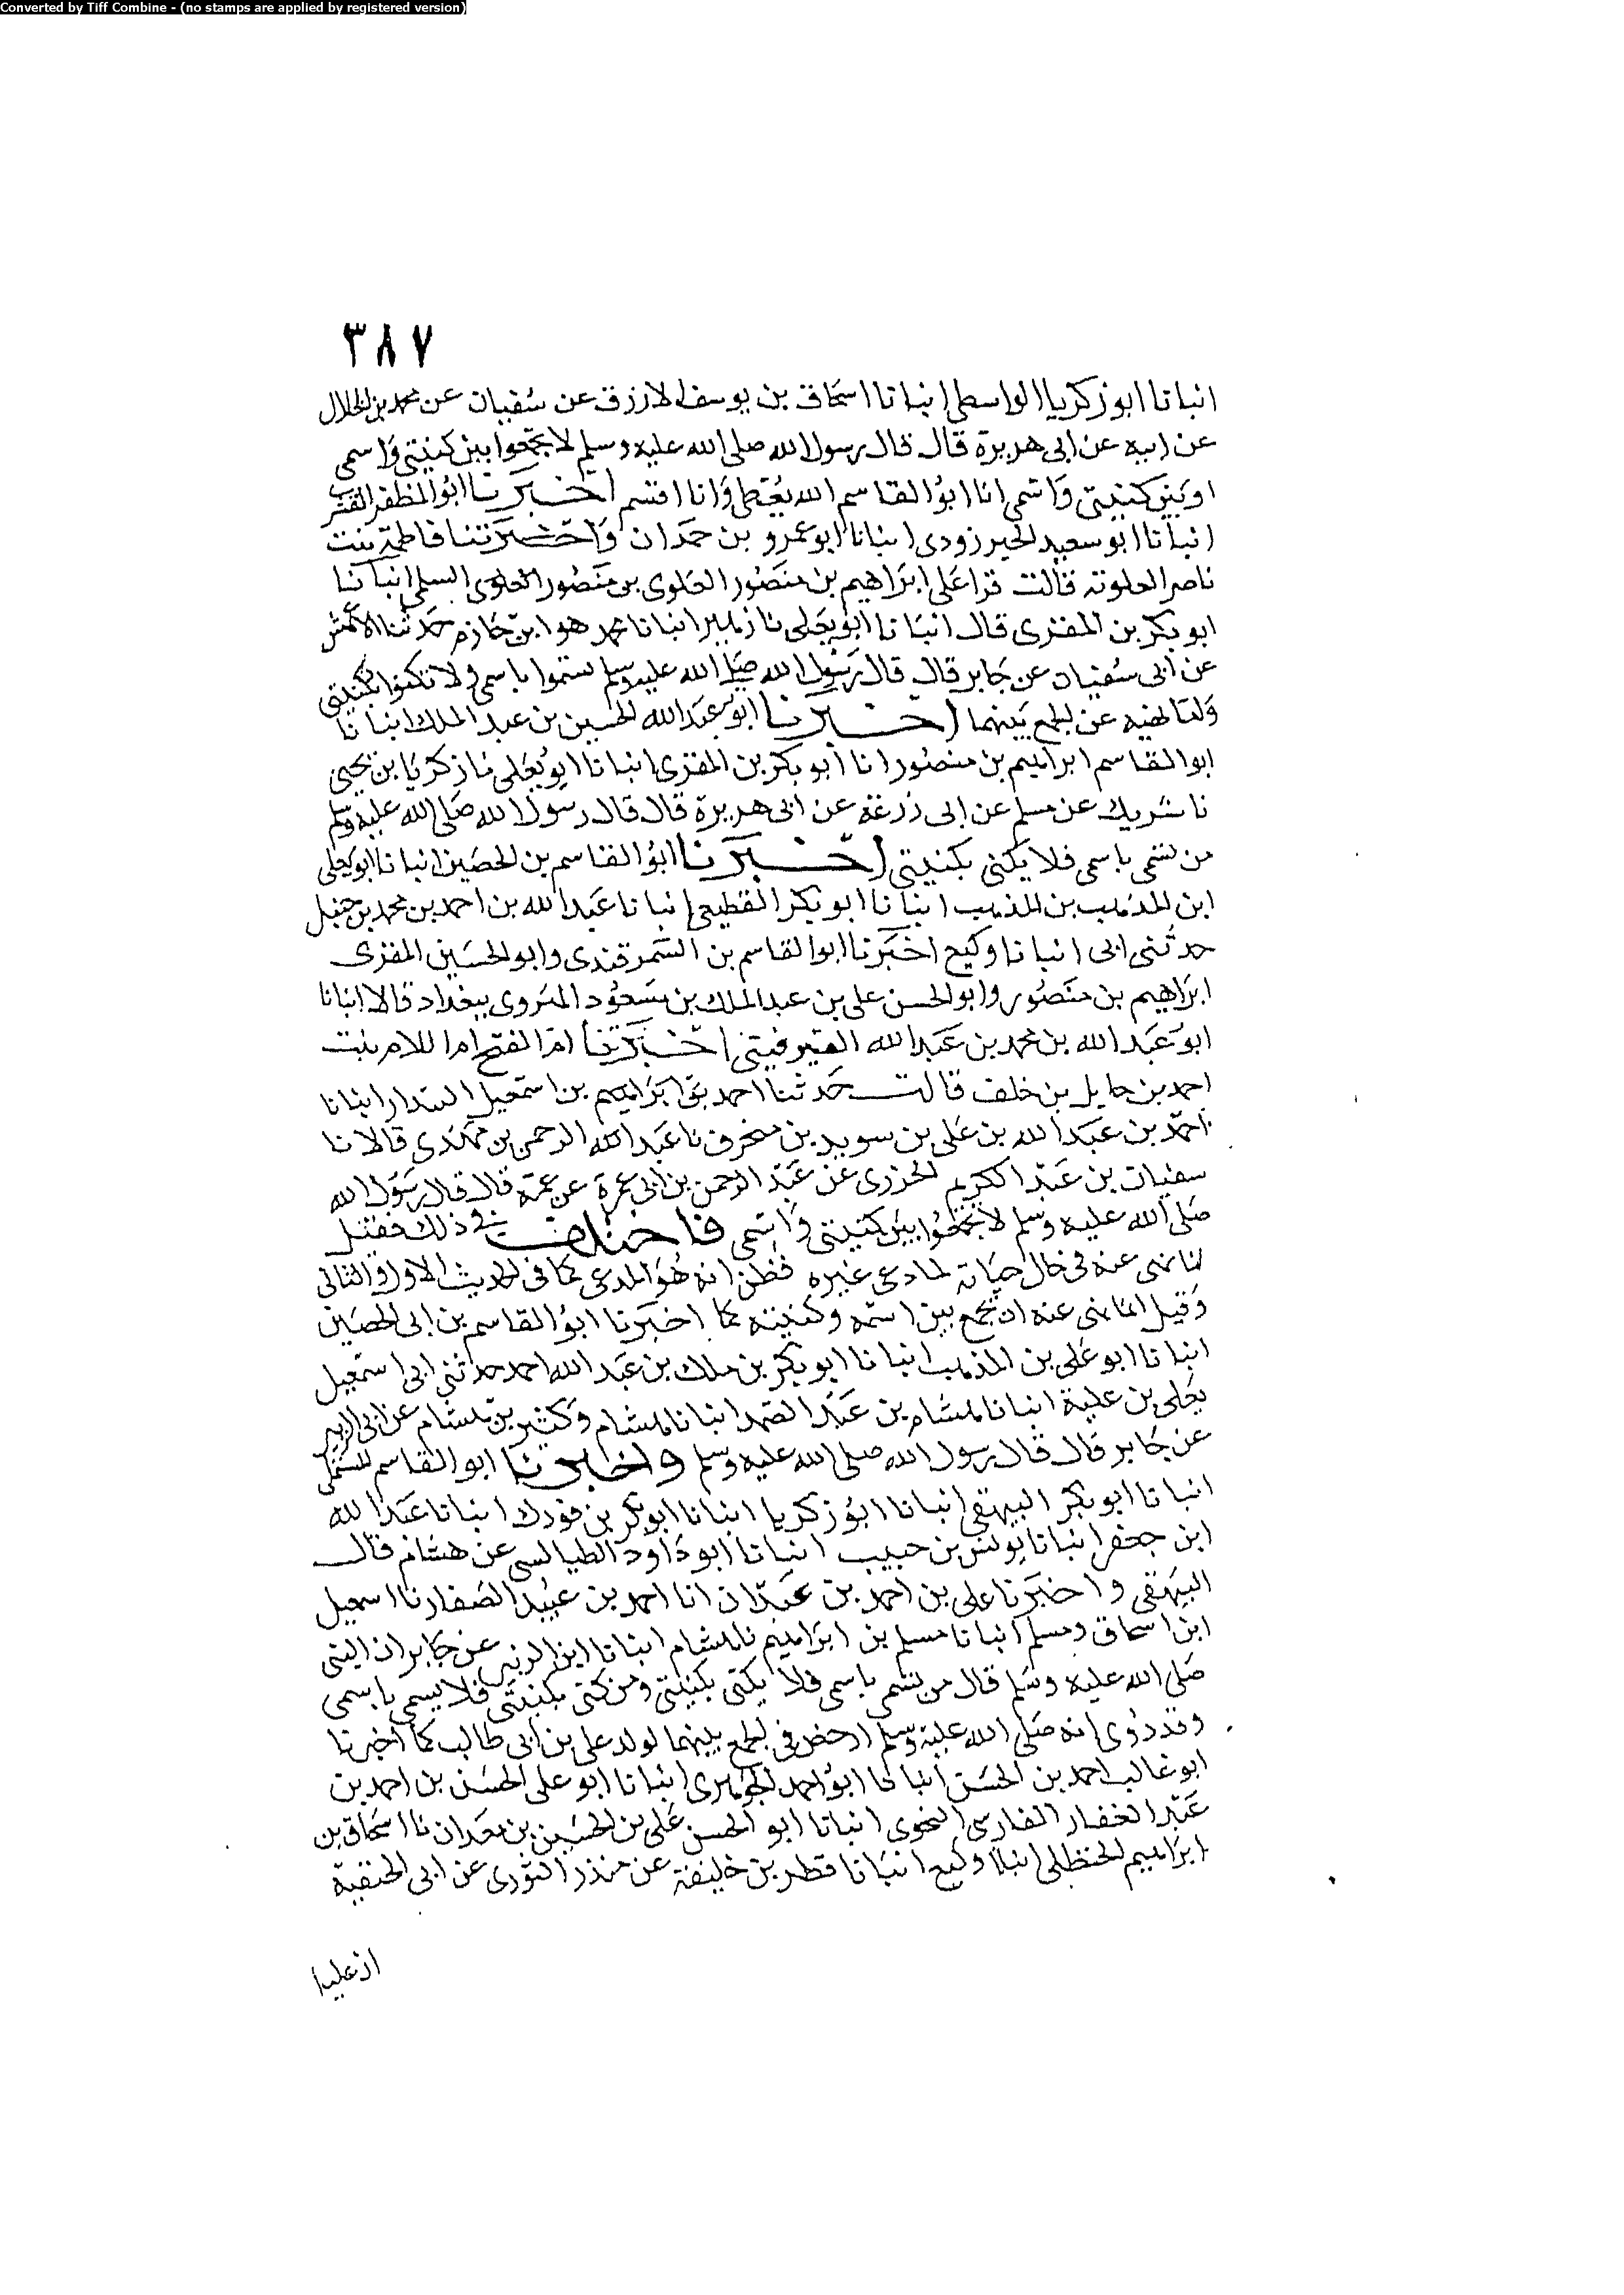 Converted by Tiff Combine - (no stamps are applied by registered version)
٣٨٧
انبانا ابو زكريا الواسطي انبانا اسحاق بن يوسف الازرق عن سفيان عن محمد بن
عن ابيه عن ابى هريرة قال قال رسول الله صلى الله عليه وسلم لا تجمعوا بين كنيتي واسمي
او بين كنيتي واسمي انا ابو القاسم الله يعطي وانا اقسم اخبرنا ابو المظفر
انبانا ابو سعيد انبانا ابو عمرو بن حمدان واخبرتنا فاطمة بنت
ناصر العلوية قالت قرا على ابراهيم بن منصور السلمي انبانا
ابو بكر بن المقرى قال انبانا ابو يعلى نا زهير انبانا محمد هو ابن خازم حدثنا الاعمش
عن ابى سفيان عن جابر قال قال رسول الله صلى الله عليه وسلم تسموا باسمي ولا تكنوا بكنيتي
عن الجمع بينهما اخبرنا ابو عبد الله الحسين بن عبد الملك انبانا
ابو القاسم ابراهيم بن منصور انا ابو بكر بن المقرى انبانا ابو يعلى نا زكريا بن يحيى
نا شريك عن مسلم عن ابى زرعة عن ابى هريرة قال قال رسول الله صلى الله عليه وسلم
من تسمى باسمي فلا يكنى بكنيتي اخبرنا ابو القاسم بن الحصين انبانا ابو يعلى
ابن المذهب بن المذهب انبانا ابو بكر القطيعي انبانا عبد الله بن احمد بن محمد بن حنبل
حدثني ابى انبانا وكيع اخبرنا ابو القاسم بن السمرقندى وابو الحسين المقرى
ابراهيم بن منصور وابو الحسن على بن عبد الملك بن مسعود ببغداد قالا انبانا
ابو عبد الله بن محمد بن عبد الله اخبرتنا ام الفتح بنت
احمد بن بن خلف قالت حدثنا احمد ابراهيم بن اسمعيل انبانا
احمد بن عبد الله بن على بن سويد بن نا عبد الله الرحمن بن مهدى قالا نا
سفيان بن عبد الكريم الجزرى عن عبد الرحمن بن ابى عمرة عن عمه قال قال رسول الله
صلى الله عليه وسلم لا تجمعوا بين كنيتي واسمي فاختلف في ذلك فقيل
انما نهى عنه في حال حياته فظن انه هو المدعى كما في الحديث الاول والثاني
وقيل انما نهى عنه ان يجمع بين اسمه وكنيته كما اخبرنا ابو القاسم بن ابى الحصين
انبانا ابو على بن المذهب انبانا ابو بكر بن ملك بن عبد الله احمد حدثني ابى اسمعيل
يعلى بن علية انبانا هشام بن عبد الصمد انبانا هشام وكثير بن هشام عن ابى الزبير
عن جابر قال قال رسول الله صلى الله عليه وسلم واخبرنا ابو القاسم
انبانا ابو بكر البيهقي انبانا ابو زكريا انبانا ابو بكر بن فورك انبانا عبد الله
ابن جعفر انبانا يونس بن حبيب انبانا ابو داود الطيالسي عن هشام قال
البيهقي واخبرنا على بن احمد بن عبدان انا احمد بن عبيد الصفار نا اسمعيل
ابن اسحاق ومسلم انبانا مسلم بن ابراهيم نا هشام انبانا ابن الزبير عن جابر ان النبي
صلى الله عليه وسلم قال من تسمى باسمي فلا يكتنى بكنيتي ومن كنى بكنيتي فلا يسمى باسمي
وقد روى انه صلى الله عليه وسلم ارخص في الجمع بينهما لولد على بن ابى طالب كما اخبرنا
ابو غالب احمد بن الحسن انبانا ابو احمد الجوهرى انبانا ابو على الحسن بن احمد بن
عبد الغفار الفارسي النحوى انبانا ابو الحسن على بن الحسين بن معدان نا اسحاق بن
ابراهيم الحنظلي انبانا وكيع انبانا فطر بن خليفة عن منذر الثورى عن ابى الحنفية
ان عليا